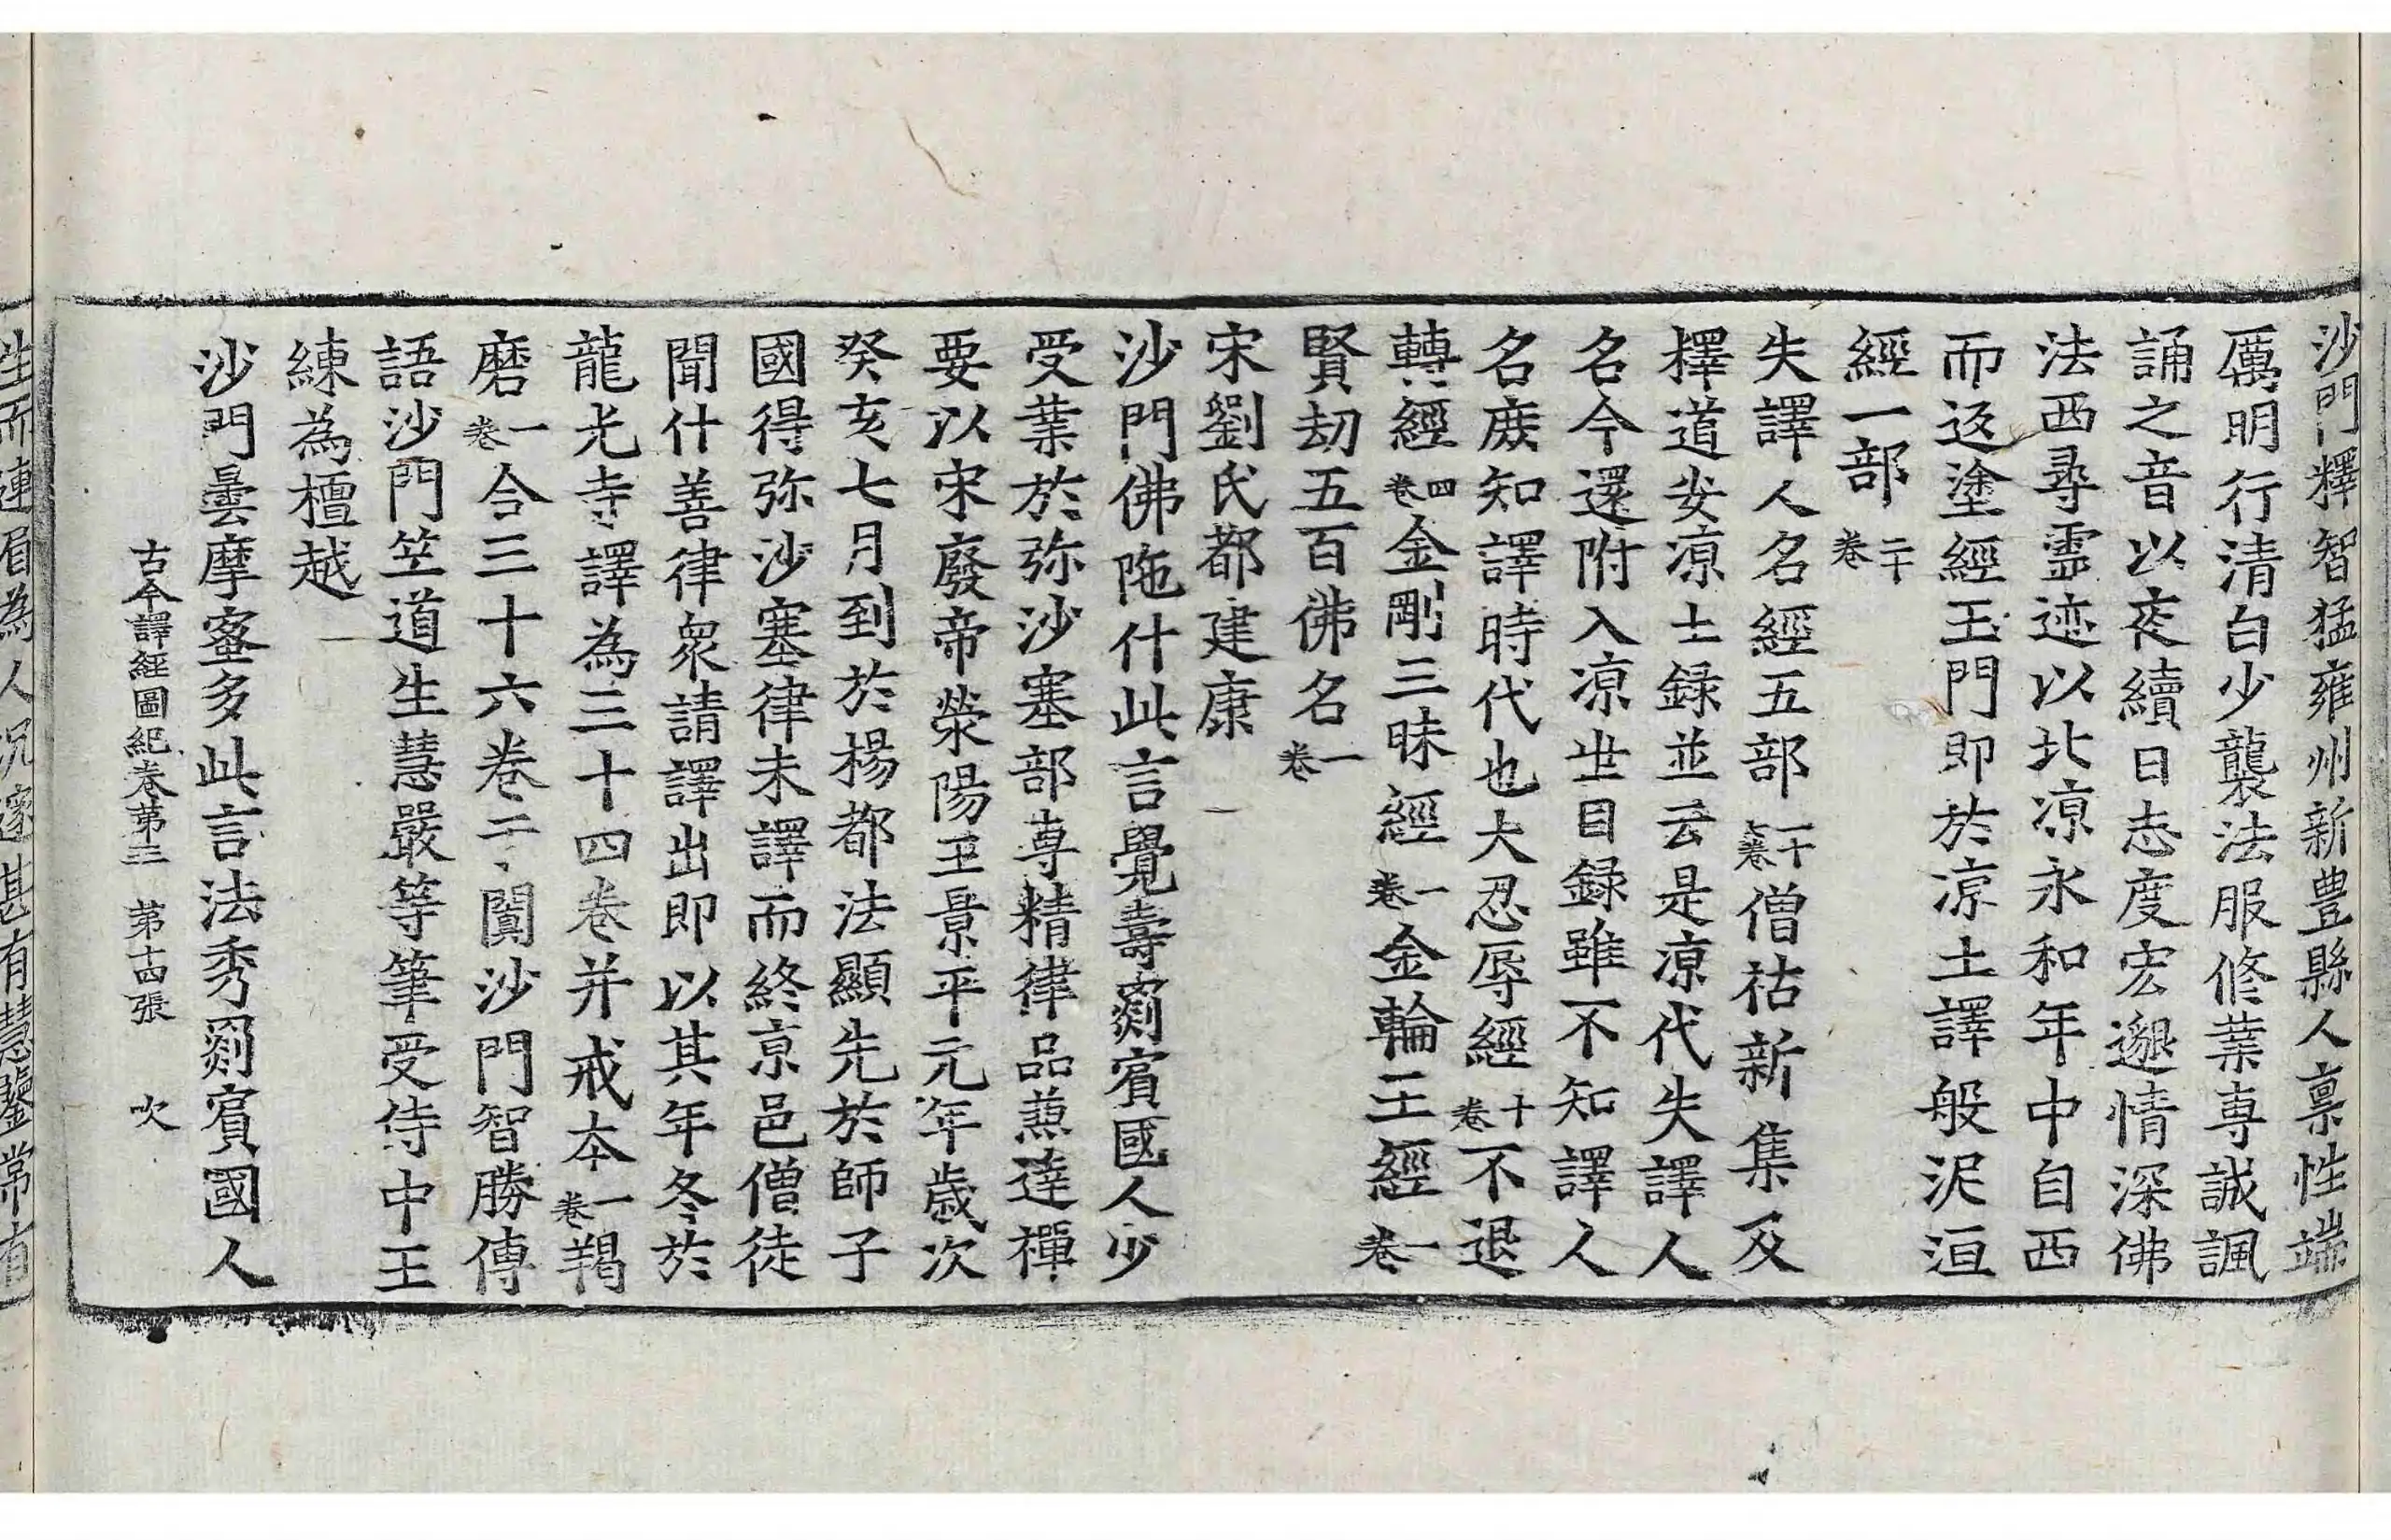 沙門釋智猛雍州新豊縣人稟性端
厲明行清白少襲法服修業專誠諷
誦之音以夜續日志度宏邈情深佛
法西尋靈迹以北涼永和年中自西
而返塗經玉門即於涼土譯般泥洹
經一部二十卷
失譯人名經五部一十七卷僧祐新集及
釋道安涼土録並云是涼代失譯人
名今還附入涼世目録雖不知譯人
名庶知譯時代也大忍辱經十卷不退
轉經四卷金剛三昧經一卷金輪王經一卷
賢劫五百佛名一卷
宋劉氏都建康
沙門佛陁什此言覺壽罽賓國人少
受業於弥沙塞部專精律品兼達禪
要以宋廢帝滎陽王景平元年歲次
癸亥七月到於楊都法顯先於師子
國得弥沙塞律未譯而終京邑僧徒
聞什善律衆請譯出即以其年冬於
龍光寺譯為三十四卷并戒本一卷羯
磨一卷合三十六卷于闐沙門智勝傳
語沙門竺道生慧嚴等筆受侍中王
練為檀越
沙門曇摩蜜多此言法秀罽賓國人
古今譯經圖紀卷第三 第十四張 吹
生而連眉為人沉邃甚有慧鑒常有